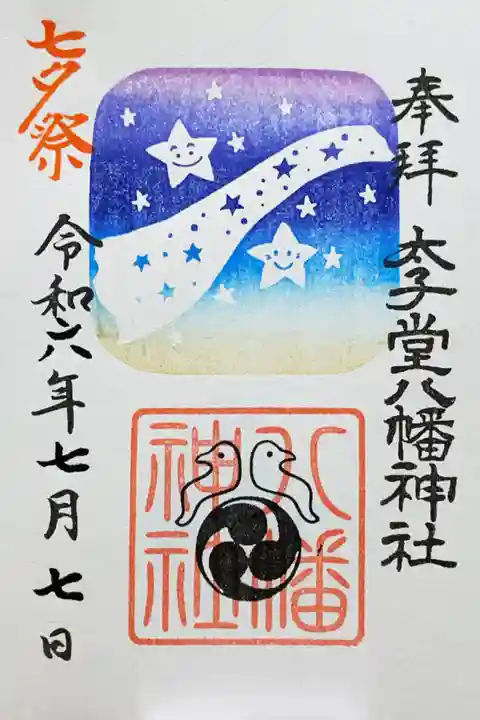 奉拝
太子堂八幡神社
八幡
神社
七夕祭
令和六年七月七日